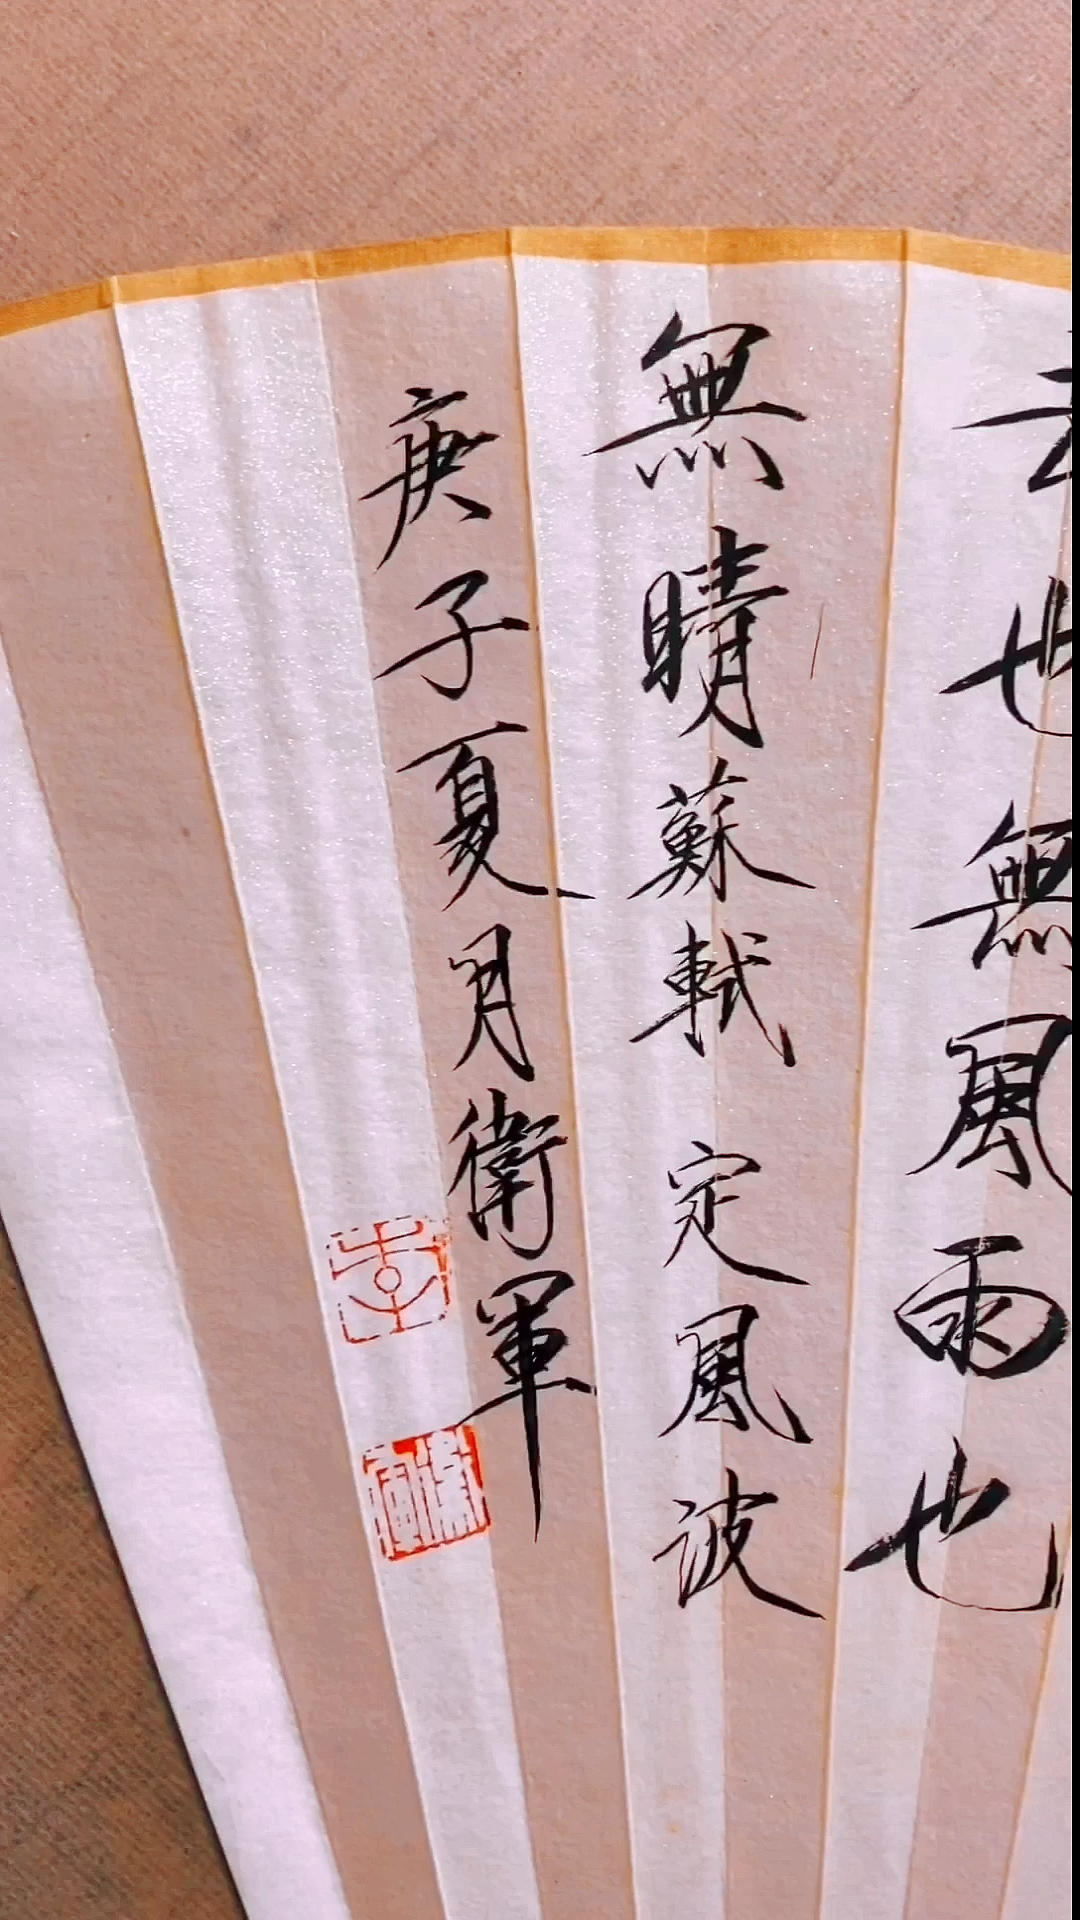 去也無風雨也
無晴蘇軾 定風波
庚子夏月衛軍
李
衛軍